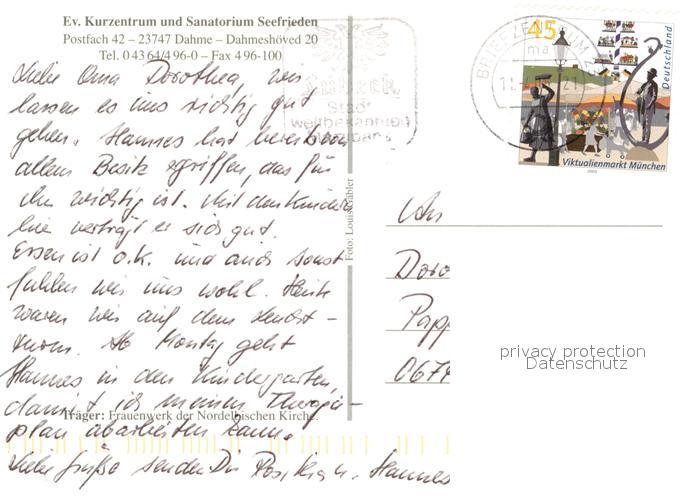 Ev. Kurzentrum und Sanatorium Seefrieden
Postfach 42 – 23747 Dahme – Dahmeshöved 20
Tel. 0 43 64/4 96-0 – Fax 4 96-100
Liebe Oma Dorothea, wir
lassen es uns richtig gut
gehen. Hannes hat bereits von
allem Besitz ergriffen, das für
ihn wichtig ist. Mit den Kindern
hier verträgt er sich gut.
Essen ist o.k. und auch sonst
fühlen wir uns wohl. Heute
waren wir auf dem Leucht-
turm. Ab Montag geht
Hannes in den Kindergarten,
damit ich meinen Therapie-
plan abarbeiten kann.
Träger: Frauenwerk der Nordelbischen Kirche.
Liebe Grüße senden Dir u. Hannes
Foto: Louis Gäbler
Lübeck
Stadt
weltbekannten
Marzipans
BRIEFZENTRUM
45
Deutschland
Viktualienmarkt München
2003
An
Doro
Papp
067
privacy protection
Datenschutz